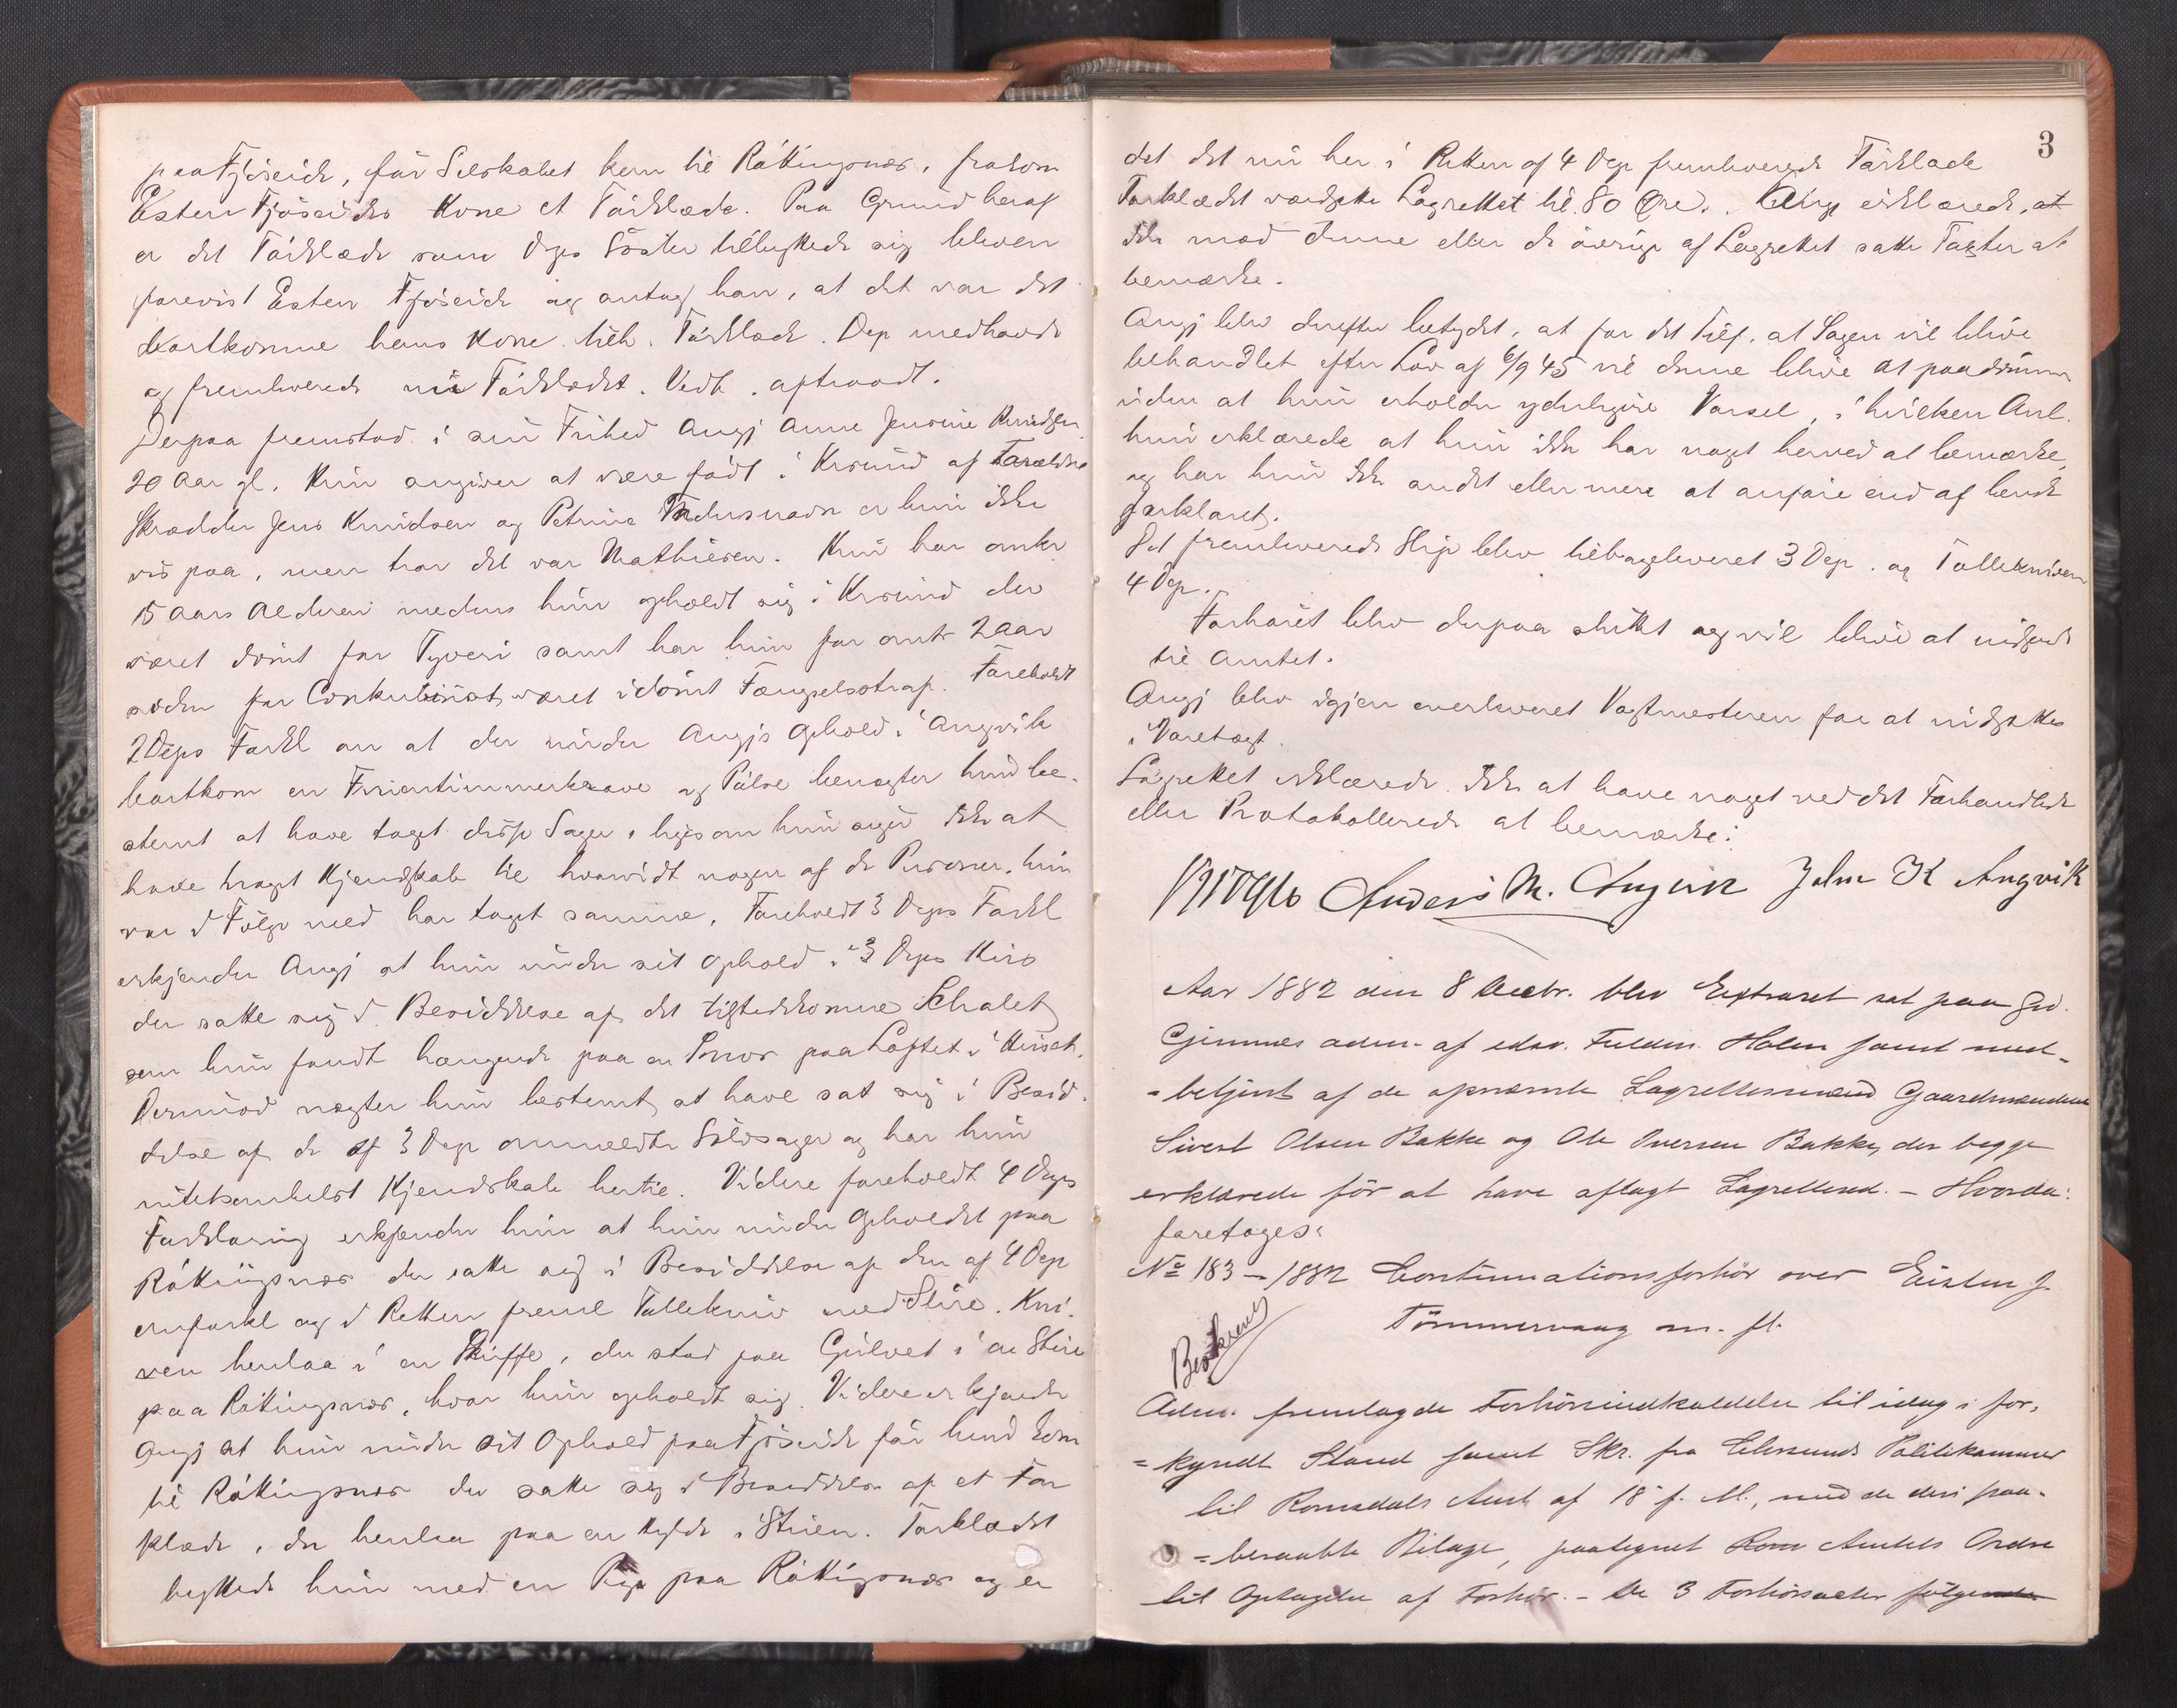 paa Fjøseide, før Selskabet kom til Råttingsnæs, frakom
Esten Fjøseides Kone et Tørklæde. Paa Grund heraf
er det Tørklæde som Deps Søster tilbyttede sig bleven
forevist Esten Fjøseide og antog han, at det var det
bortkomne hans Kone tilh. Tørklæde. Dep medhavde
og fremleverede nu Tørklædet. Vedt. aftraadt.
Derpaa fremstod i sin Frihed Angj Anne Jensine Knudsen
20 Aar gl. Hun angiver at være født i Krsund af Forældre
Skrædder Jens Knudsen og Petrine Fadersnavn er hun ikke
vis paa, men tror det var Mathiesen. Hun har omkr
15 Aars Alderen medens hun opholdt sig i Krsund der
været dømt for Tyveri samt har hun for omtr 2 Aar
siden for Conkubinat været idømt Fængselsstraf. Foreholdt
2 Deps Forkl om at der under Angjs Ophold i Angvik
bortkom en Fruentimmerkaave og Pølse benægter hun be-
stemt at have taget disse Sager, ligesom hun siger ikke at
have noget Kjendskab til hvorvidt nogen af de Personer, hun
var i Følge med har taget samme. Foreholdt 3 Deps Forkl
erkjender Angj at hun under sit Ophold i 3 Deps Hus
der satte sig i Besiddelse af det tilstedekomne Schalet
som hun fandt hængende paa en Snor paa Loftet i Huset.
Derimod nægter hun bestemt at have sat sig i Besid-
delse af de af 3 Dep anmeldte Sølvsager og har hun
intetsomhelst Kjendskab hertil. Videre foreholdt 4 Deps
Forklaring erkjender hun at hun under Opholdet paa
Råttingsnæs der satte sig i Besiddelse af den af 4 Dep
omforkl og i Retten freml Tollekniv med Slire. Kni-
ven henlaa i en Skuffe, der stod paa Gulvet i en Stue
paa Råttingsnæs, hvor hun opholdt sig. Videre erkjender
Angj at hun under sit Ophold paa Fjøseide før hun kom
til Råttingsnæs der satte sig i Besiddelse af et Tør
klæde, der henlaa paa en Hylde i Stuen. Tørklædet
byttede hun med en Pige paa Råttingsnæs og er
3
det det nu her i Retten af 4 Dep fremleverede Tørklæde
Tørklædet værdsatte Lagrettet til 80 Øre. Angj erklærede, at
ikke mod denne eller de øvrige af Lagrettet satte Taxter at
bemærke.
Angj blev derefter betydet, at for det Tilf. at Sagen vil blive
behandlet efter Lov af 6/9 45 vil denne blive at paadømme
uden at hun erholder yderligere Varsel, i hvilken Anl.
hun erklærede at hun ikke har noget herved at bemærke,
og har hun ikke andet eller mere at anføre end af hende
forklaret.
Det fremleverede Skjo blev tilbageleveret 3 Dep. og Tollekniven
4 Dep.
Forhøret blev derpaa sluttet og vil blive at udfærd
til Amtet.
Angj blev igjen overleveret Vagtmesteren for at indsættes
i Varetægt.
Lagrettet erklærede ikke at have noget ved det Forhandlede
eller Protokollerede at bemærke:
Anders M. Angvik John K Angvik
Aar 1882 den 8 Decbr. blev Extraret sat paa Grd.
Gjemnes adm. af edsv. Fuldm. Holm samt med-
-betjent af de opnævnte Lagrettesmænd Gaardmændene
Sivert Olsen Bakke og Ole Iversen Bakke, der begge
erklærede før at have aflagt Lagretteed. - Hvorda:
foretoges:
No 183 - 1882 Continuationsforhør over Eisten J.
Tømmervaag m. fl.
Beskreven
Adm. fremlagde Forhørsindkaldelse til idag i for-
=kyndt Stand samt Skr. fra Chrsunds Politikammer
til Romsdals Amt af 18 f. M., med de deri paa-
=beraabte Bilage, paategnet Roms Amtets Ordre
til Optagelse af Forhør. - De 3 Forhørsacter følgende